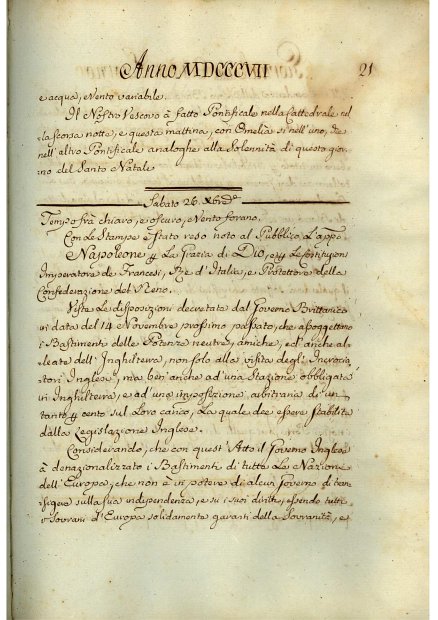 Anno MDCCCVII
21
e acqua, e Vento variabile.
Il Nostro Vescovo à fatto Pontificale nella Cattedrale nel
la scorsa notte, e questa mattina, con Omelia sì nell'uno, che
nell'altro Pontificale analoghe alla Solennità di questo gior
no del Santo Natale
Sabato 26. Xbre
Tempo frà chiaro, e oscuro, e Vento forano.
Con le Stampe è stato reso noto al Pubblico L'appo
Napoleone ꝑ La Grazia di DIO, e ꝑ Le Costituzioni
Imperatore de Francesi, Rè d'Italia, e Protettore della
Confederazione del Reno.
Viste Le disposizioni decretate dal Governo Brittanico
in data del 14 Novembre prossimo passato, che assoggettono
i Bastimenti delle Potenze neutre, amiche, ed anche al-
leate dell'Inghilterra, non solo alla visita degl'Incrocia
tori Inglesi, mà ben'anche ad una Stazione obbligata
in Inghilterra, e ad una imposizione arbitraria di un
tanto ꝑ cento sul Loro carico, La quale dee essere stabilita
dalla Legislazione Inglese.
Considerando, che con quest'Atto il Governo Inglese
à denazionalizzato i Bastimenti di tutte Le Nazioni
dell'Europa, che non è in potere di alcun Governo di tran
sigere sulla sua indipendenza, e su i suoi diritti, essendo tutti
i Sovrani d'Europa solidamente garanti della Sovranità, e